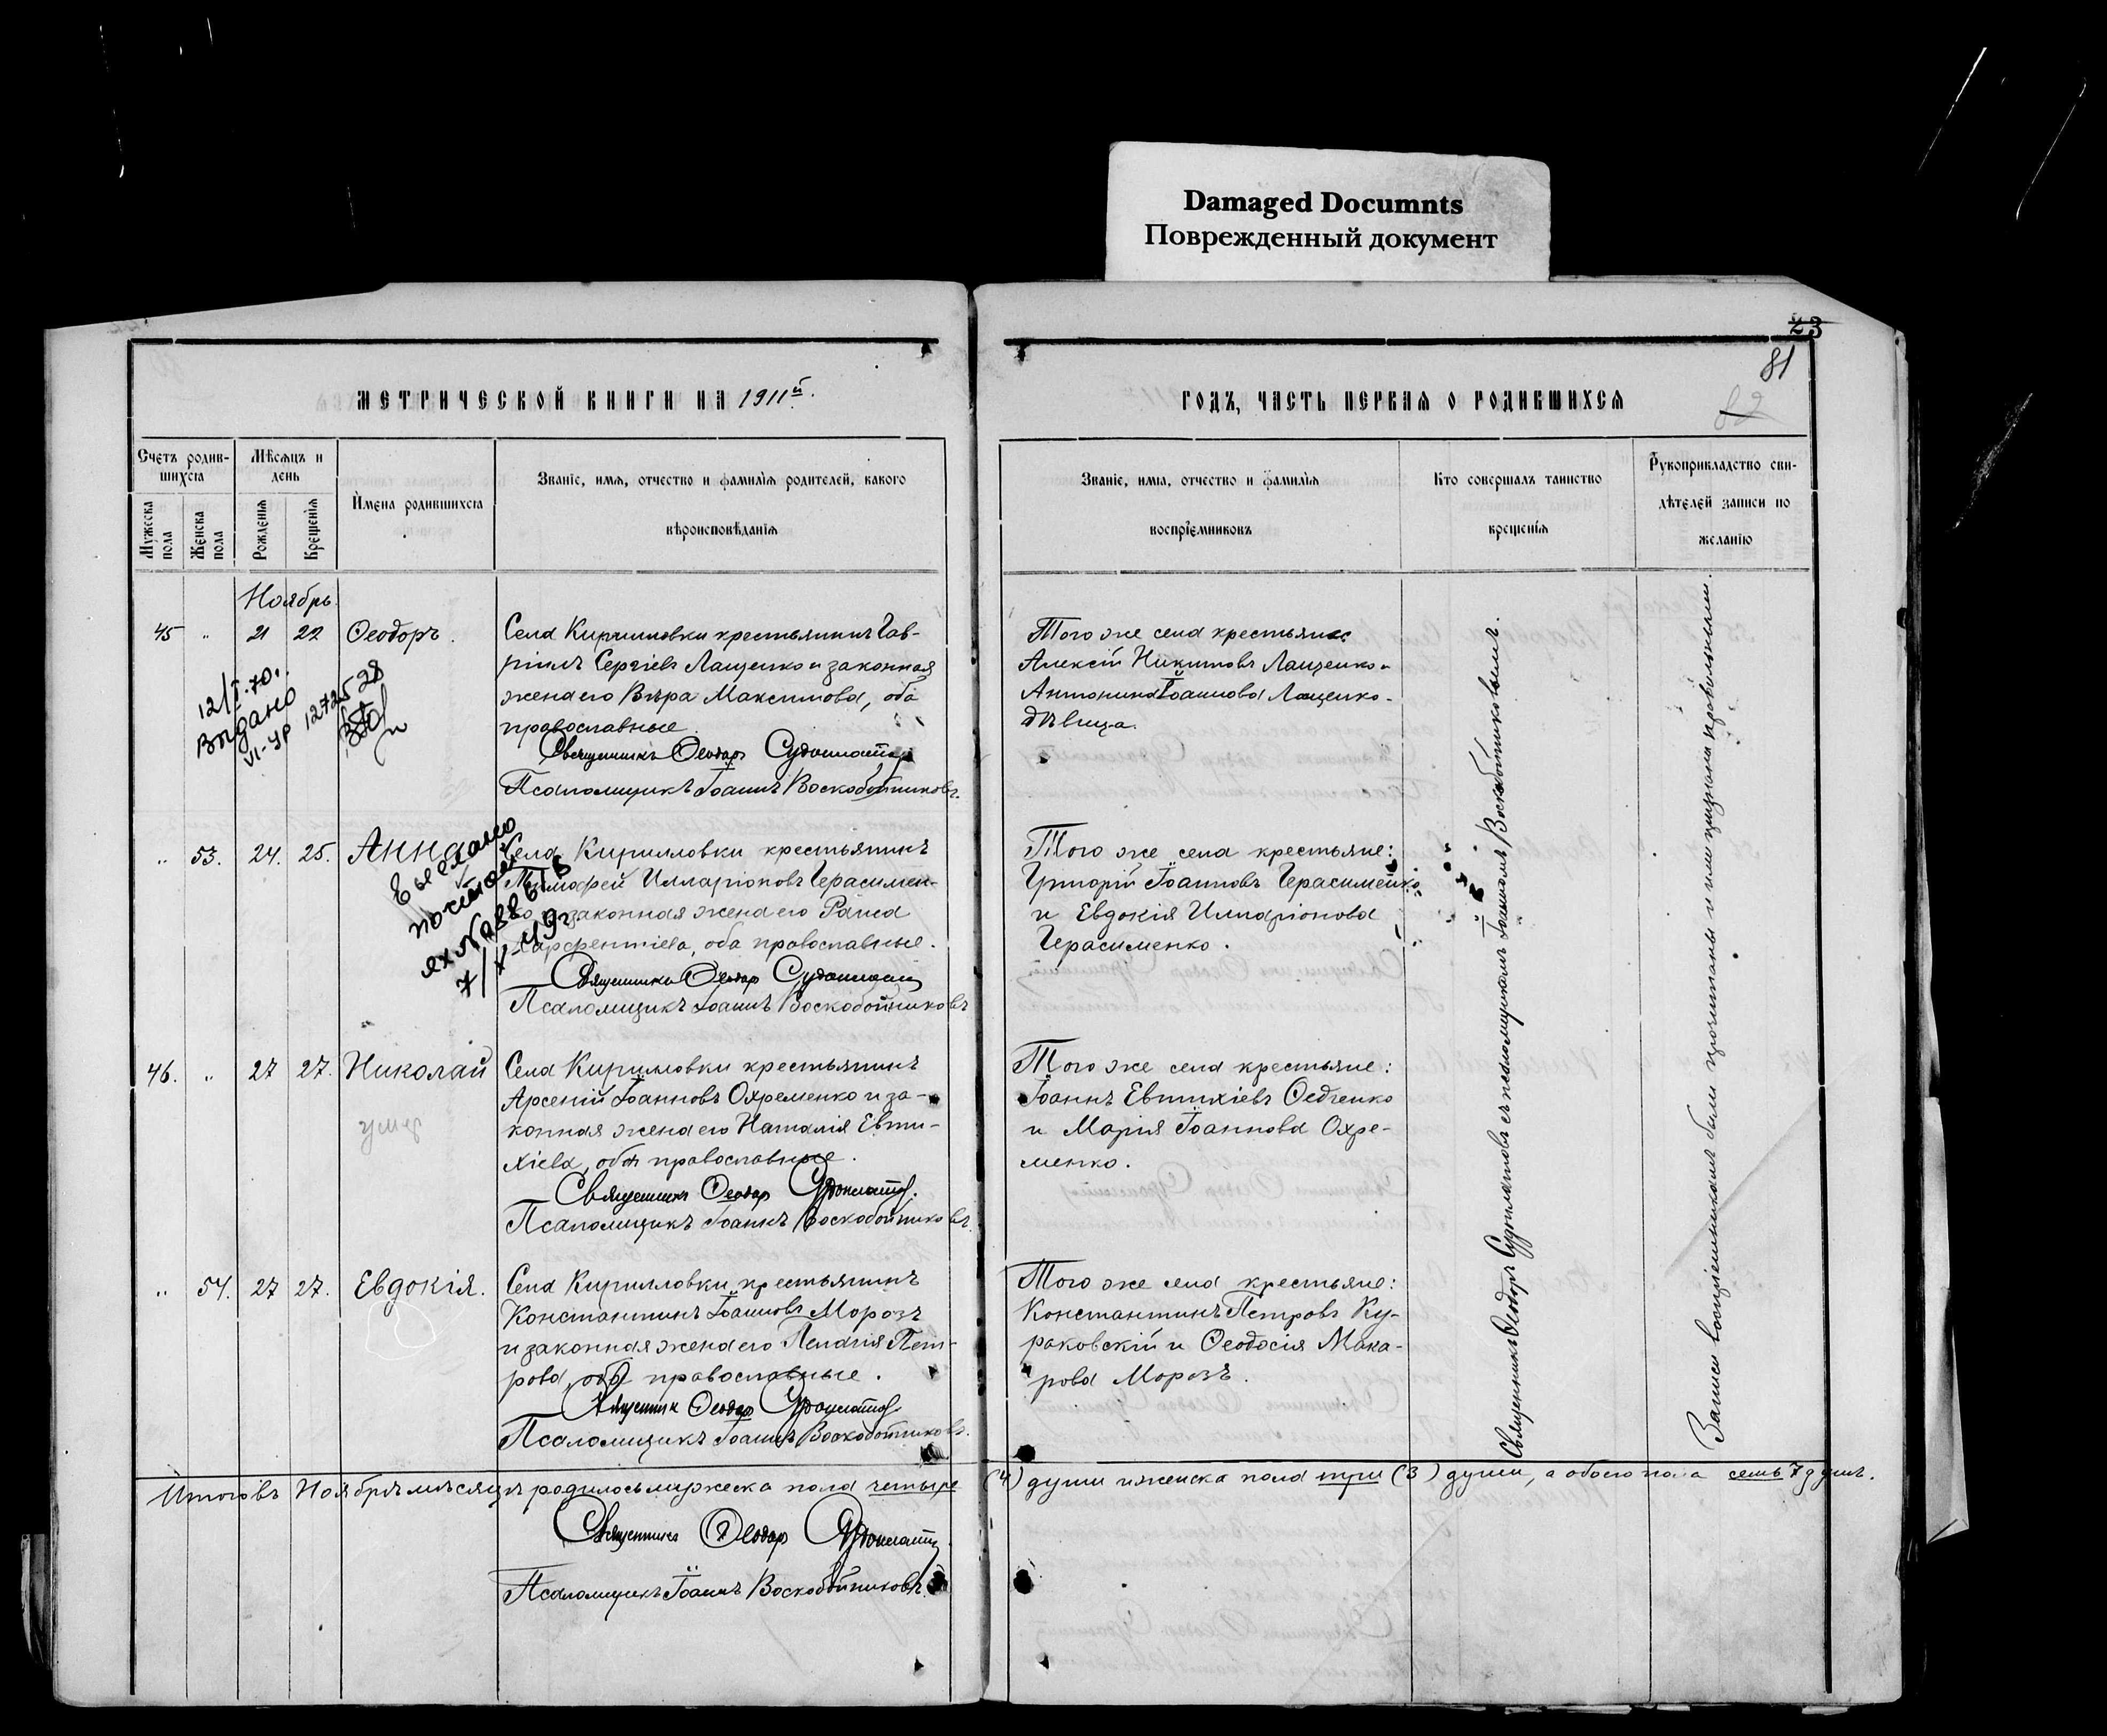 Damaged Documnts
Поврежденный документ
23
81
82
МЕТРИЧЕСКОЙ КНИГИ НА 1911й.
ГОДЪ, ЧАСТЬ ПЕРВАЯ О РОДИВШИХСЯ
Счетъ родив-
шихся
Мужеска пола
Женска пола
Мѣсяцъ и
день
Рожденія
Крещенія
Имена родившихся
Званіе, имя, отчество и фамилія родителей, какого
вѣроисповѣданія
Званіе, имя, отчество и фамилія
воспріемниковъ
Кто совершалъ таинство
крещенія
Рукоприкладство сви-
дѣтелей записи по
желанію
Ноябрь
45 " 21 22 Ѳеодоръ.
Села Кирилловки крестьянинъ Гав-
ріилъ Сергіевъ Лащенко и законная
жена его Вѣра Максимова, оба
православные
Священникъ Ѳеодоръ
Псаломщикъ Іоаннъ Воскобойниковъ.
Того же села крестьяне
Алексій Никитовъ Лащенко и
Антонина Іоаннова Лащенко-
дѣвица.
12/I.70.
Выдано
VI-УР 1272528
" 53. 24. 25. Анна
Села Кирилловки крестьянинъ
Тимофей Илларіоновъ Герасимен-
ко и законная жена его Раиса
Парфентіева, оба православные.
Священникъ Ѳеодоръ
Псаломщикъ Іоаннъ Воскобойниковъ
Того же села крестьяне:
Григорій Іоанновъ Герасименко
и Евдокія Илларіонова
Герасименко.
7/X-49г.
46. " 27 27. Николай
умер
Села Кирилловки крестьянинъ
Арсеній Іоанновъ Охременко и за-
конная жена его Наталія Евти-
хіева, оба православные.
Священникъ Ѳеодоръ
Псаломщикъ Іоаннъ Воскобойниковъ.
Того же села крестьяне:
Іоаннъ Евтихіевъ Ѳедченко
и Марія Іоаннова Охре-
менко.
" 54. 27 27. Евдокія.
Села Кирилловки крестьянинъ
Константинъ Іоанновъ Морозъ
и законная жена его Пелагія Пет-
рова, оба православные.
Священникъ Ѳеодоръ
Псаломщикъ Іоаннъ Воскобойниковъ.
Того же села крестьяне:
Константинъ Петровъ Ку-
раковскій и Ѳеодосія Мака-
рова Морозъ.
Священникъ Ѳеодоръ съ псаломщикомъ Іоанномъ Воскобойниковымъ.
Записи воспріемникамъ были прочитаны и ими признаны правильными.
Итого въ Ноябрѣ мѣсяцѣ родилось мужеска пола четыре (4) души и женска пола три (3) души, а обоего пола семь 7 душъ.
Священникъ Ѳеодоръ
Псаломщикъ Іоаннъ Воскобойниковъ.